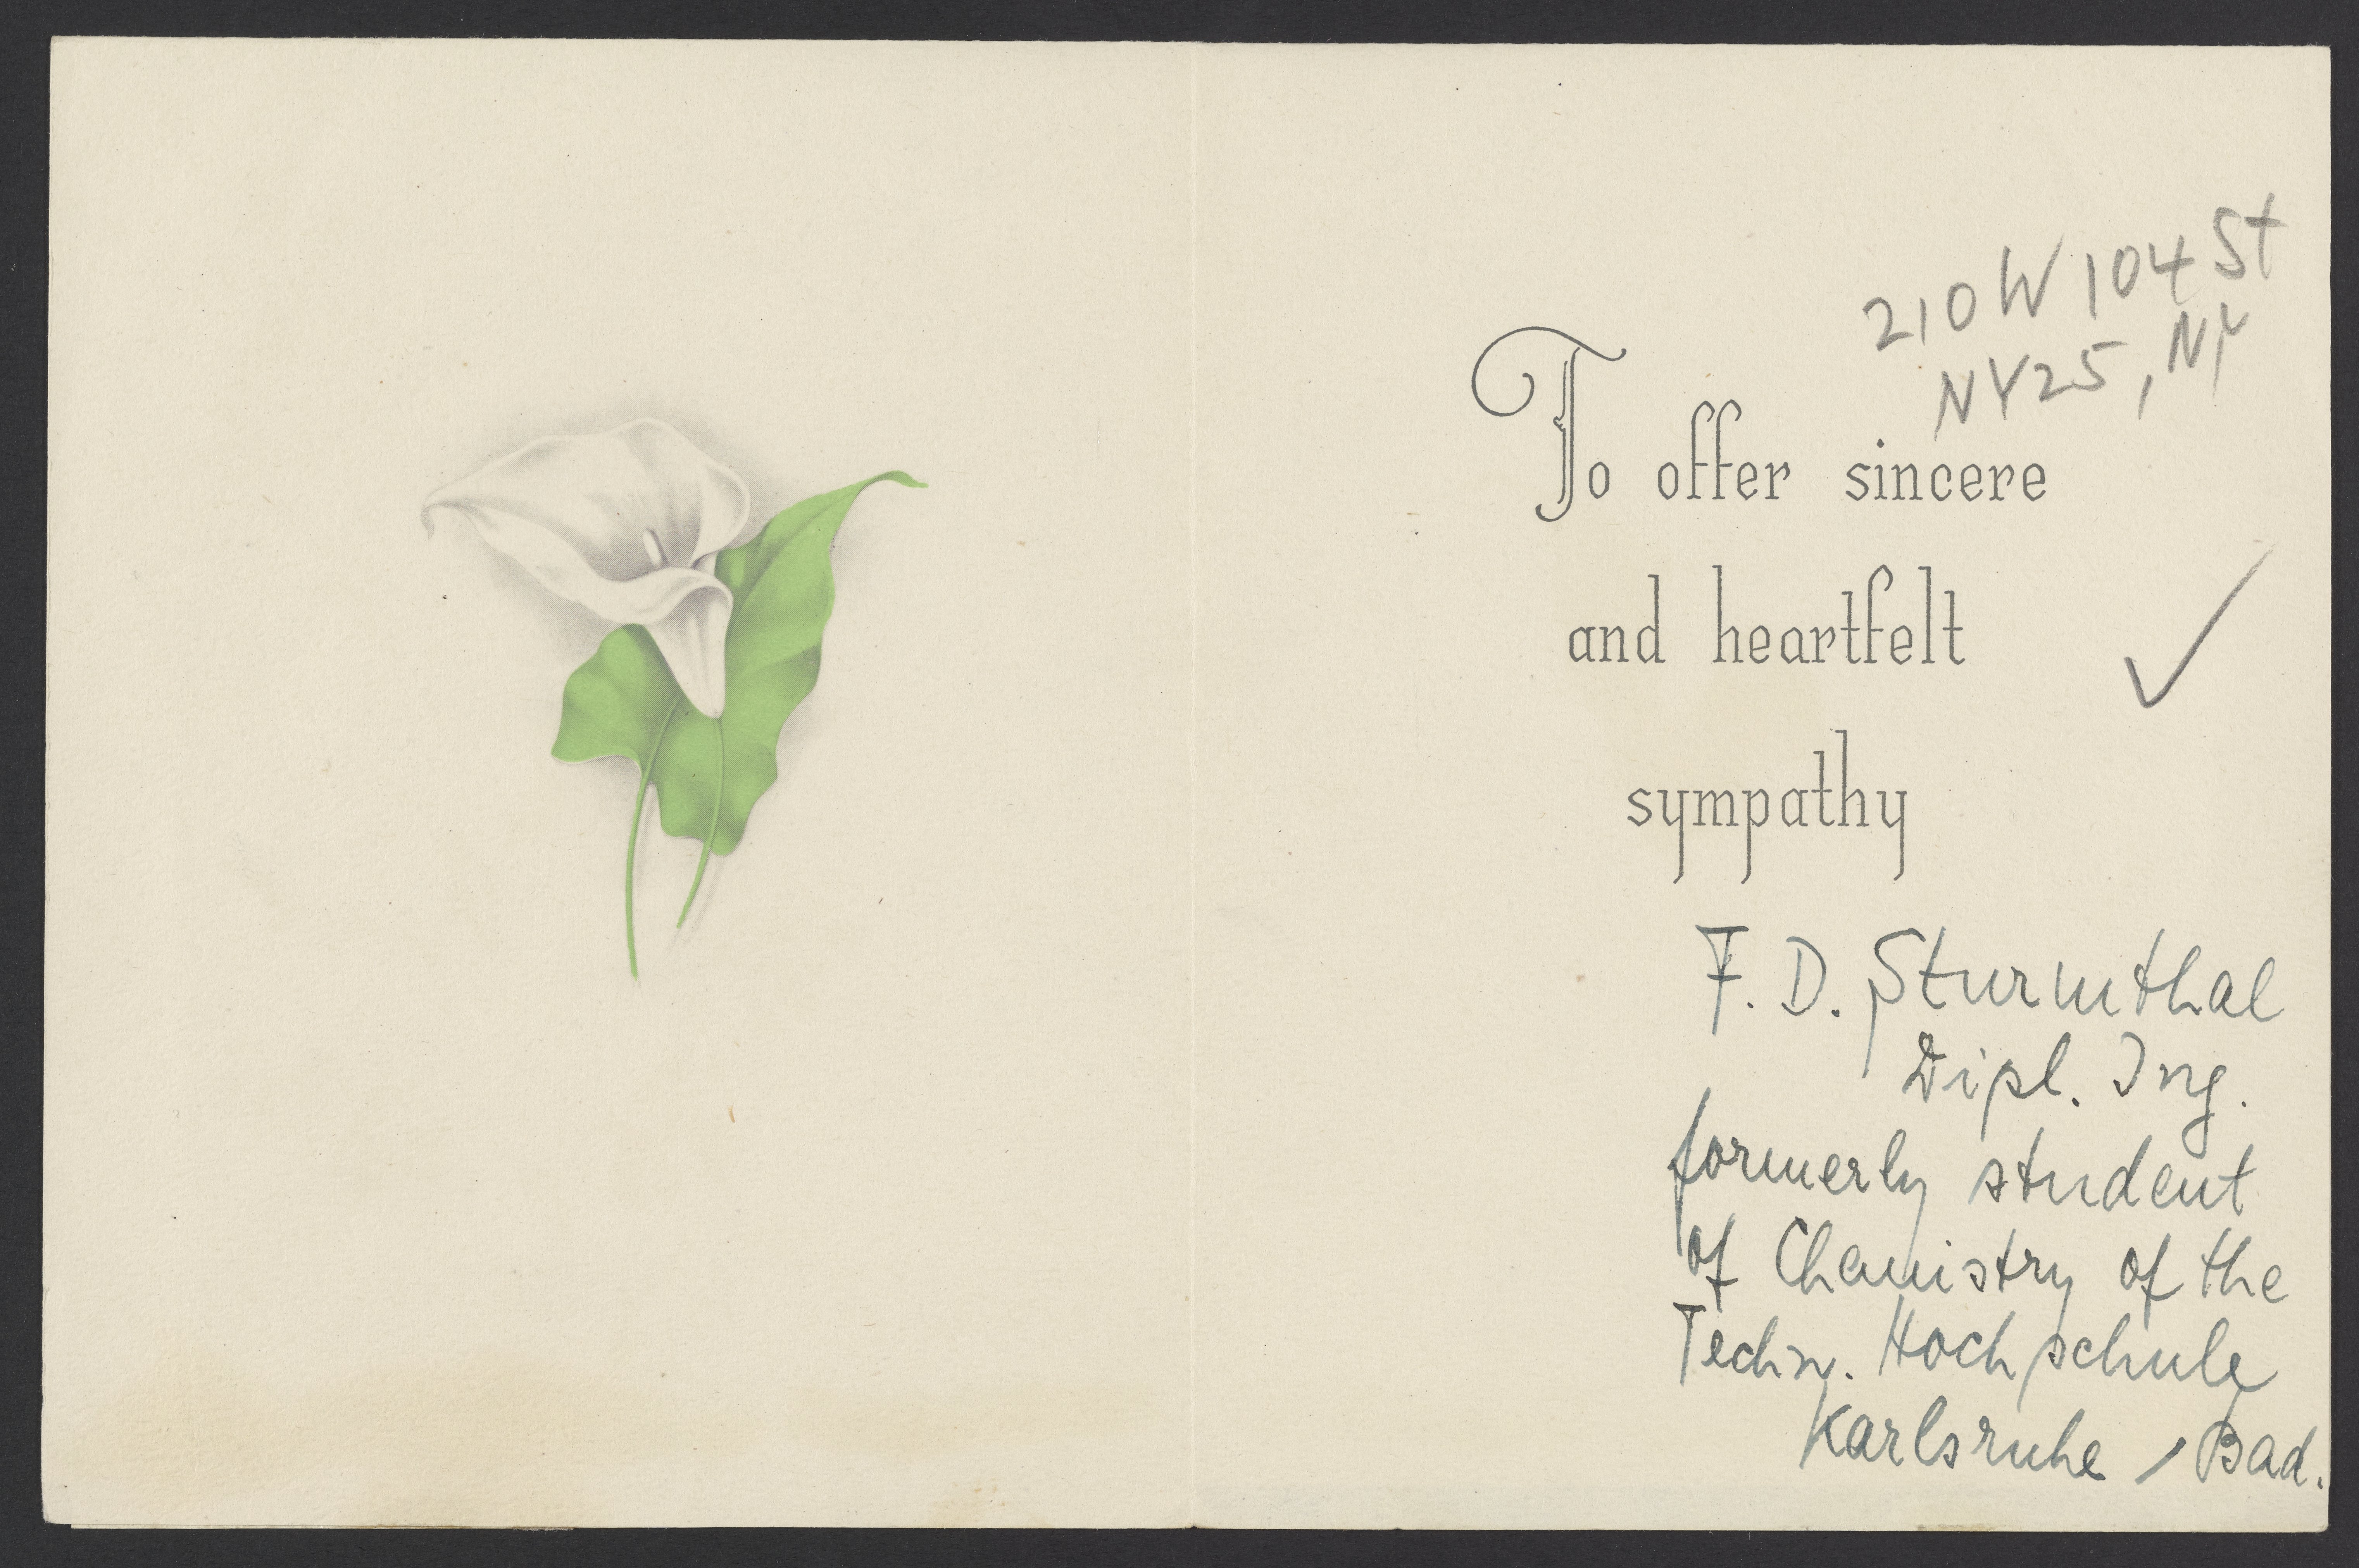 210 W 104 St
NY25, NY
To offer sincere
and heartfelt
sympathy
F. D. Sturmthal
Dipl. Ing.
formerly student
of Chemistry of the
Techn. Hochschule
Karlsruhe / Bad.